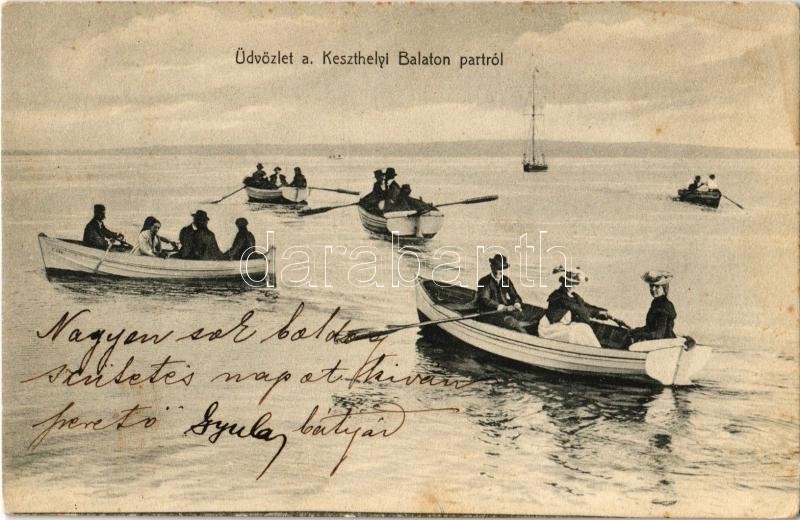 Üdvözlet a. Keszthelyi Balaton partról
darabanth.com
Nagyen sok boldog
születés napot kiván
szerető Gyula bátyád